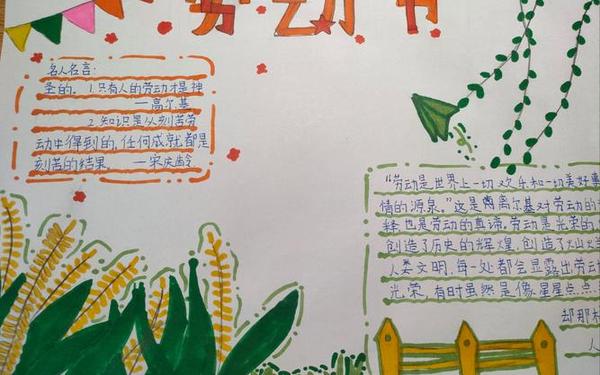 劳动节
名人名言:
圣的。1.只有人的劳动才是神
——高尔基
2.知识是从刻苦劳
动中得到的,任何成就都是
刻苦的结果。——宋庆龄
“劳动是世界上一切欢乐和一切美好事
情的源泉。”这是高尔基对劳动的
释也是劳动的真谛,劳动是光荣的
创造了历史的辉煌,创造了火山火
人类文明,每一处都会显露出劳动
光荣,有时虽然是像星星点点
却那
人